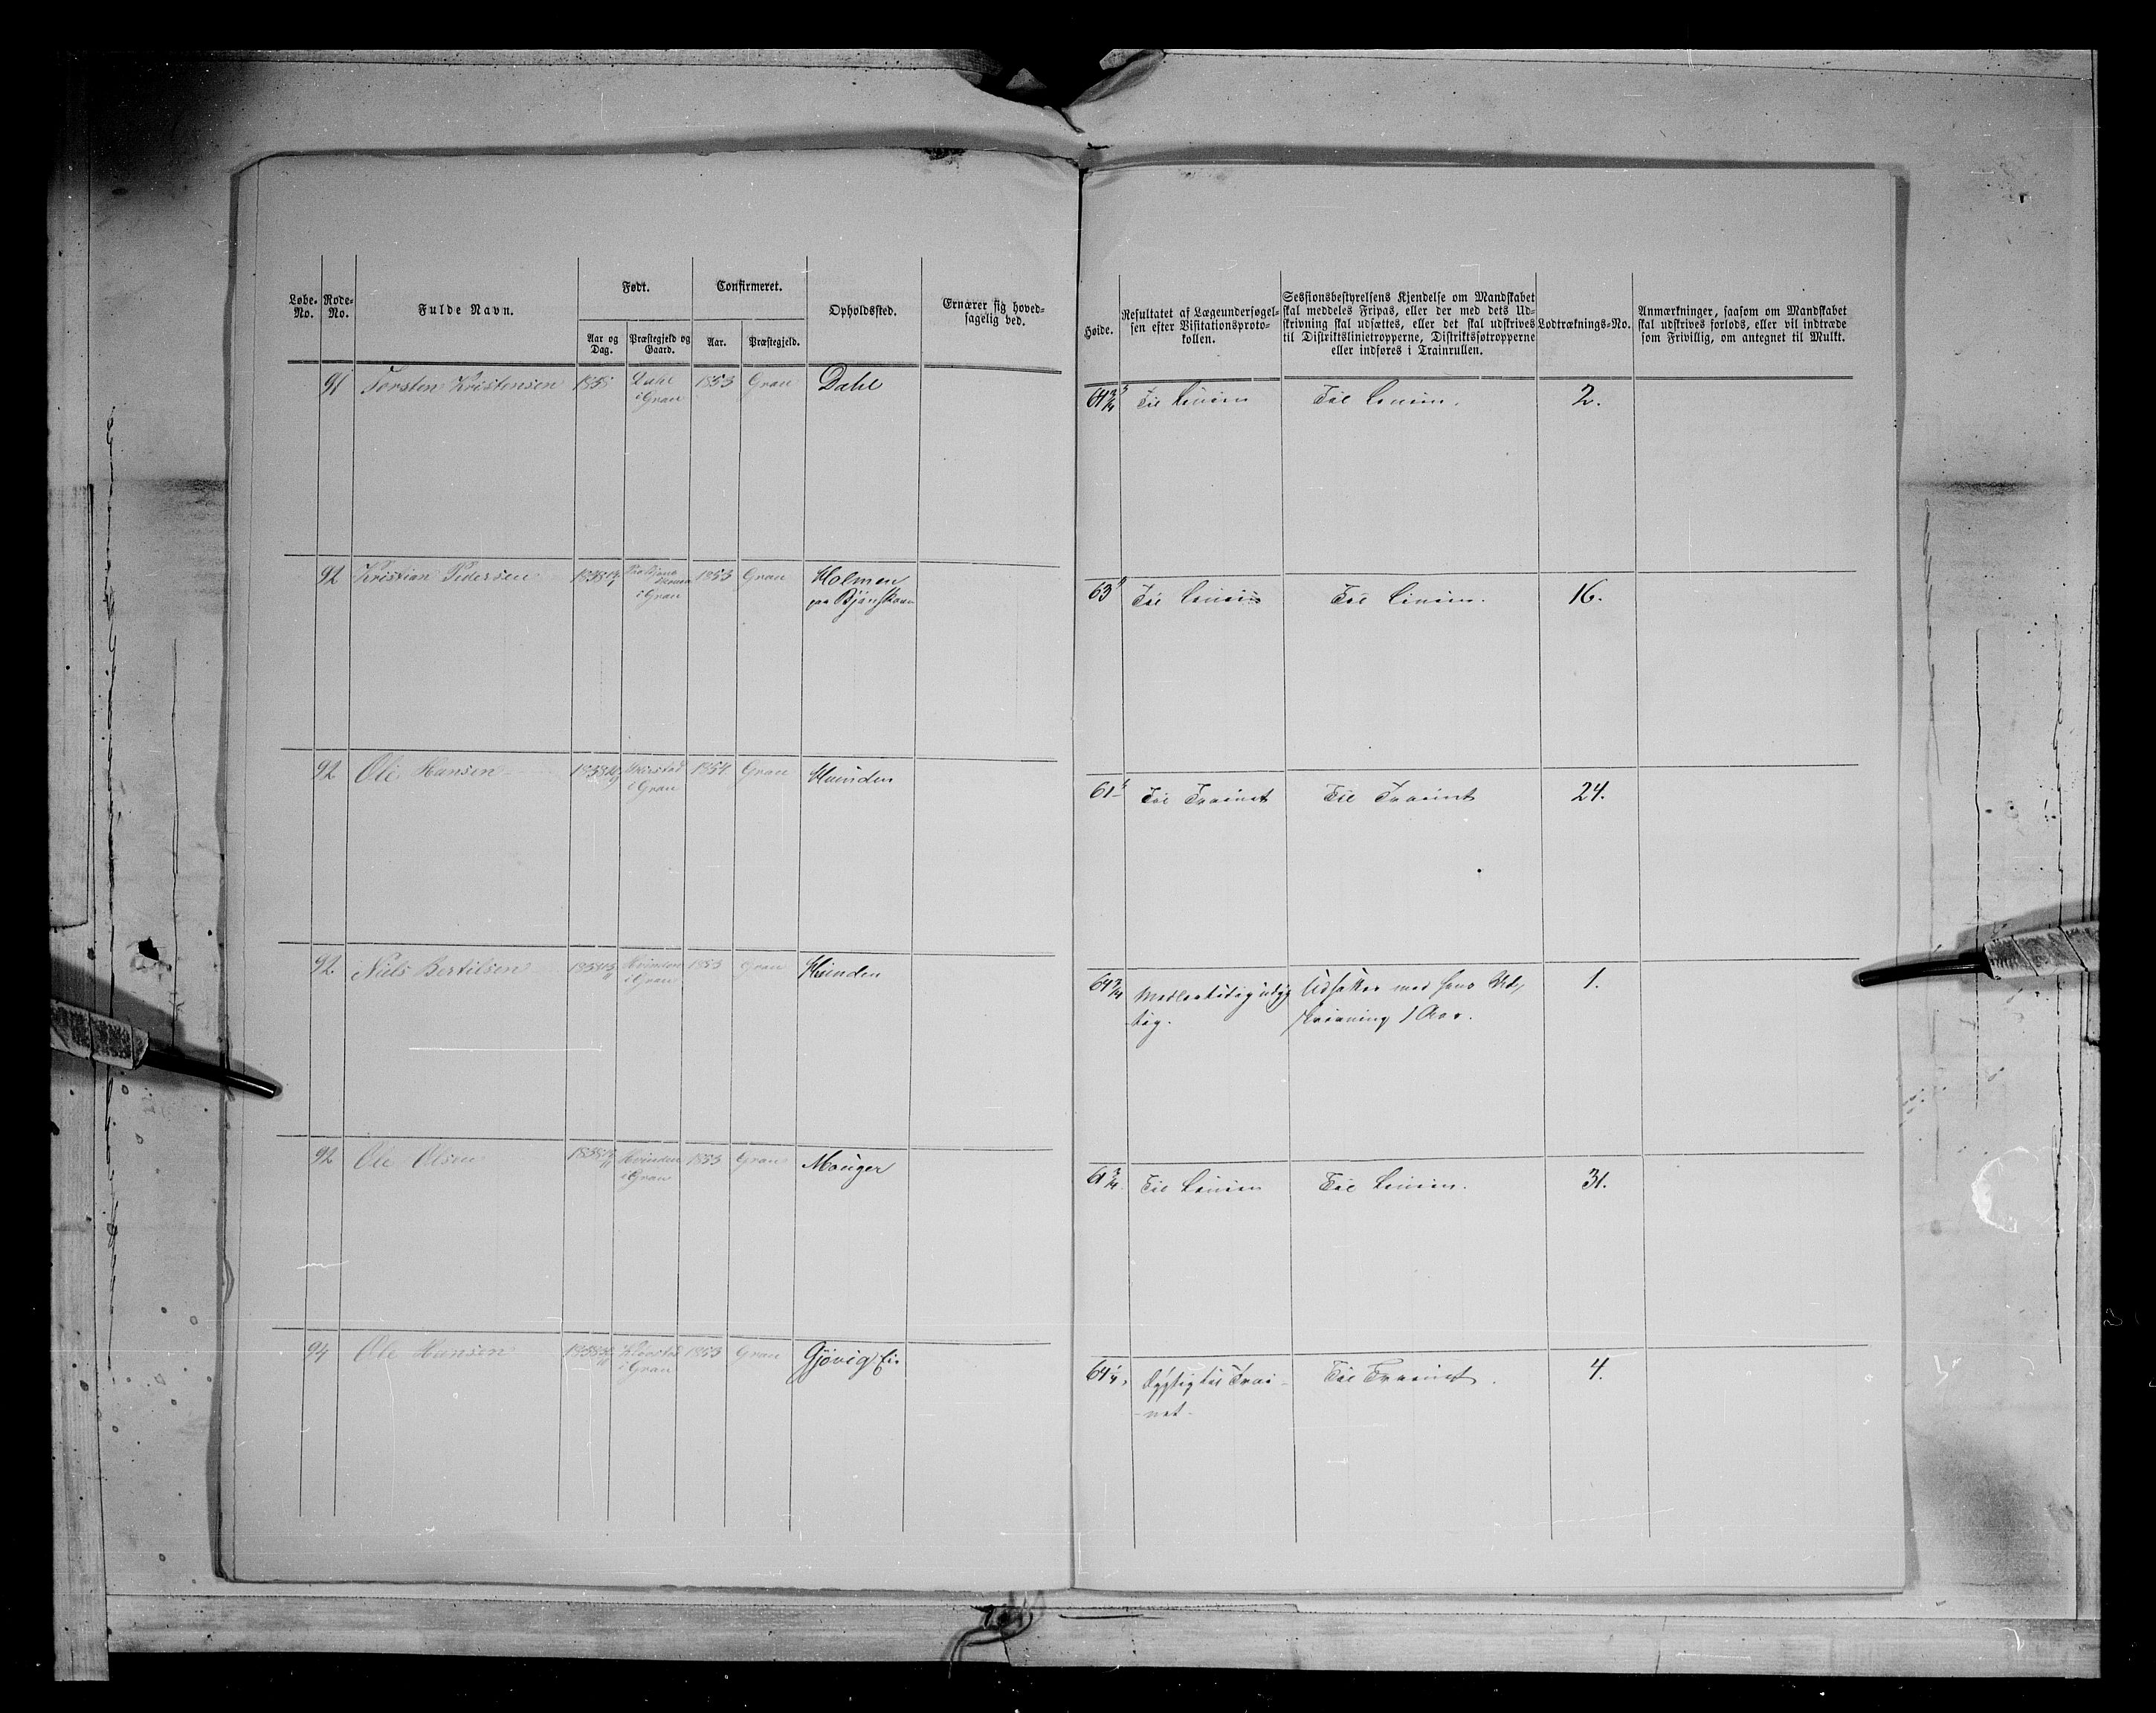 Løbe-No.
Rode-No.
Fulde Navn.
Født.
Aar og Dag.
Præstegjeld og Gaard.
Confirmeret.
Aar.
Præstegjeld.
Opholdssted.
Ernærer sig hoved-
sagelig ved.
Høide.
Resultatet af Lægeundersøgel-
sen efter Visitationsproto-
kollen.
Sessionsbestyrelsens Kjendelse om Mandskabet
skal meddeles Fripas, eller der med dets Ud-
skrivning skal udsættes, eller det skal udskrives
til Distriktslinietropperne, Distriktsfotropperne
eller indføres i Trainrullen.
Lodtræknings-No.
Anmærkninger, saasom om Mandskabet
skal udskrives forlods, eller vil indtræde
som Frivillig, om antegnet til Mulkt.
91 Torsten Kristensen Dahl 1853 Gran Dahl
i Gran
64 3/4 Til Linien Til Linien. 2.
92 Kristian Pedersen 1853 Gran Holmen
i Gran
63" Til Linien Til Linien. 16.
92 Ole Hansen 1854 Gran Hvinden
i Gran
61" Til Trainet Til Trainet 24.
92. Niels Bertilsen Hvinden 1853 Gran Hvinden
i Gran
64 3/4 Udsættes med hans Ud-
tig. skrivning 1 Aar. 1.
92 Ole Olsen Hvinden 1853 Gran Mauger
i Gran
61 3/4 Til Linien Til Linien. 31.
94 Ole Hansen 1853 Gran Gjøvig Ei.
i Gran
64 1/4 Dygtig til Trai- Til Trainet. 4.
net